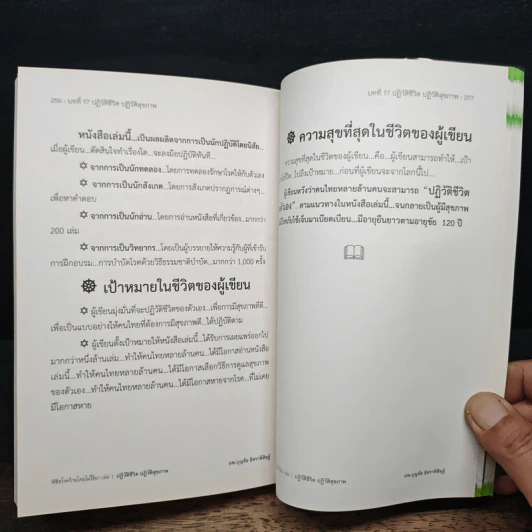 256 - บทที่ 17 ปฏิวัติชีวิต ปฏิวัติสุขภาพ
หนังสือเล่มนี้...เป็นผลผลิตจากการเป็นนักปฏิบัติโดยนิสัย...
เมื่อผู้เขียน...ตัดสินใจทำเรื่องใด...จะลงมือปฏิบัติทันที...
จากการเป็นนักทดลอง...โดยการทดลองรักษาโรคให้กับตัวเอง
จากการเป็นนักสังเกต...โดยการสังเกตปรากฏการณ์ต่างๆ...
เพื่อหาคำตอบ
จากการเป็นนักอ่าน...โดยการอ่านหนังสือที่เกี่ยวข้อง...มากกว่า
200 เล่ม
จากการเป็นวิทยากร...โดยเป็นผู้บรรยายให้ความรู้กับผู้ที่เข้ารับ
การฝึกอบรม...การบำบัดโรคด้วยวิธีธรรมชาติบำบัด...มากกว่า 1,000 ครั้ง
เป้าหมายในชีวิตของผู้เขียน
ผู้เขียนมุ่งมั่นที่จะปฏิวัติชีวิตของตัวเอง...เพื่อการมีสุขภาพที่ดี...
เพื่อเป็นแบบอย่างให้คนไทยที่ต้องการมีสุขภาพดี...ได้ปฏิบัติตาม
ผู้เขียนตั้งเป้าหมายให้หนังสือเล่มนี้...ได้รับการเผยแพร่ออกไป
มากกว่าหนึ่งล้านเล่ม...ทำให้คนไทยหลายล้านคน...ได้มีโอกาสอ่านหนังสือ
เล่มนี้...ทำให้คนไทยหลายล้านคน...ได้มีโอกาสเลือกวิธีการดูแลสุขภาพ
ของตัวเอง...ทำให้คนไทยหลายล้านคน...ได้มีโอกาสหายจากโรค...ที่ไม่เคย
มีโอกาสหาย
พิชิตโรคร้ายโดยไม่ใช้ยา เล่ม 1 : ปฏิวัติชีวิต ปฏิวัติสุขภาพ
บทที่ 17 ปฏิวัติชีวิต ปฏิวัติสุขภาพ - 257
ความสุขที่สุดในชีวิตของผู้เขียน
ความสุขที่สุดในชีวิตของผู้เขียน...คือ...ผู้เขียนสามารถทำให้...เป้า
ชีวิต...ไปถึงเป้าหมาย...ก่อนที่ผู้เขียนจะจากโลกนี้ไป...
ผู้เขียนหวังว่าคนไทยหลายล้านคนจะสามารถ "ปฏิวัติชีวิต
...ตามแนวทางในหนังสือเล่มนี้...จนกลายเป็นผู้มีสุขภาพ
ไข้เจ็บมาเบียดเบียน...มีอายุยืนยาวตามอายุขัย 120 ปี
นพ.บุญชัย อิศราพิสิษฐ์
เล่ม 1 : ปฏิวัติชีวิต ปฏิวัติสุขภาพ